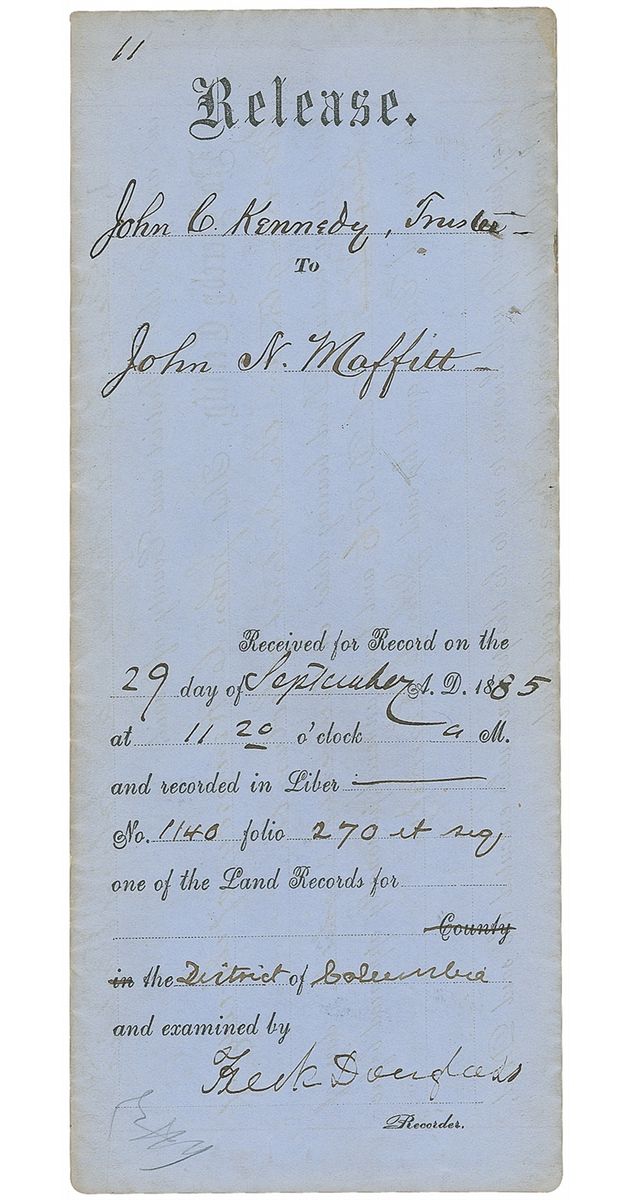 11
Release.
John C. Kennedy, Trustee
To
John N. Maffitt
Received for Record on the
29 day of September A. D. 1885
at 11 20 o'clock a M.
and recorded in Liber
No. 1140 folio 270 et seq
one of the Land Records for
County
in the District of Columbia
and examined by
Fredk Douglass
Recorder.